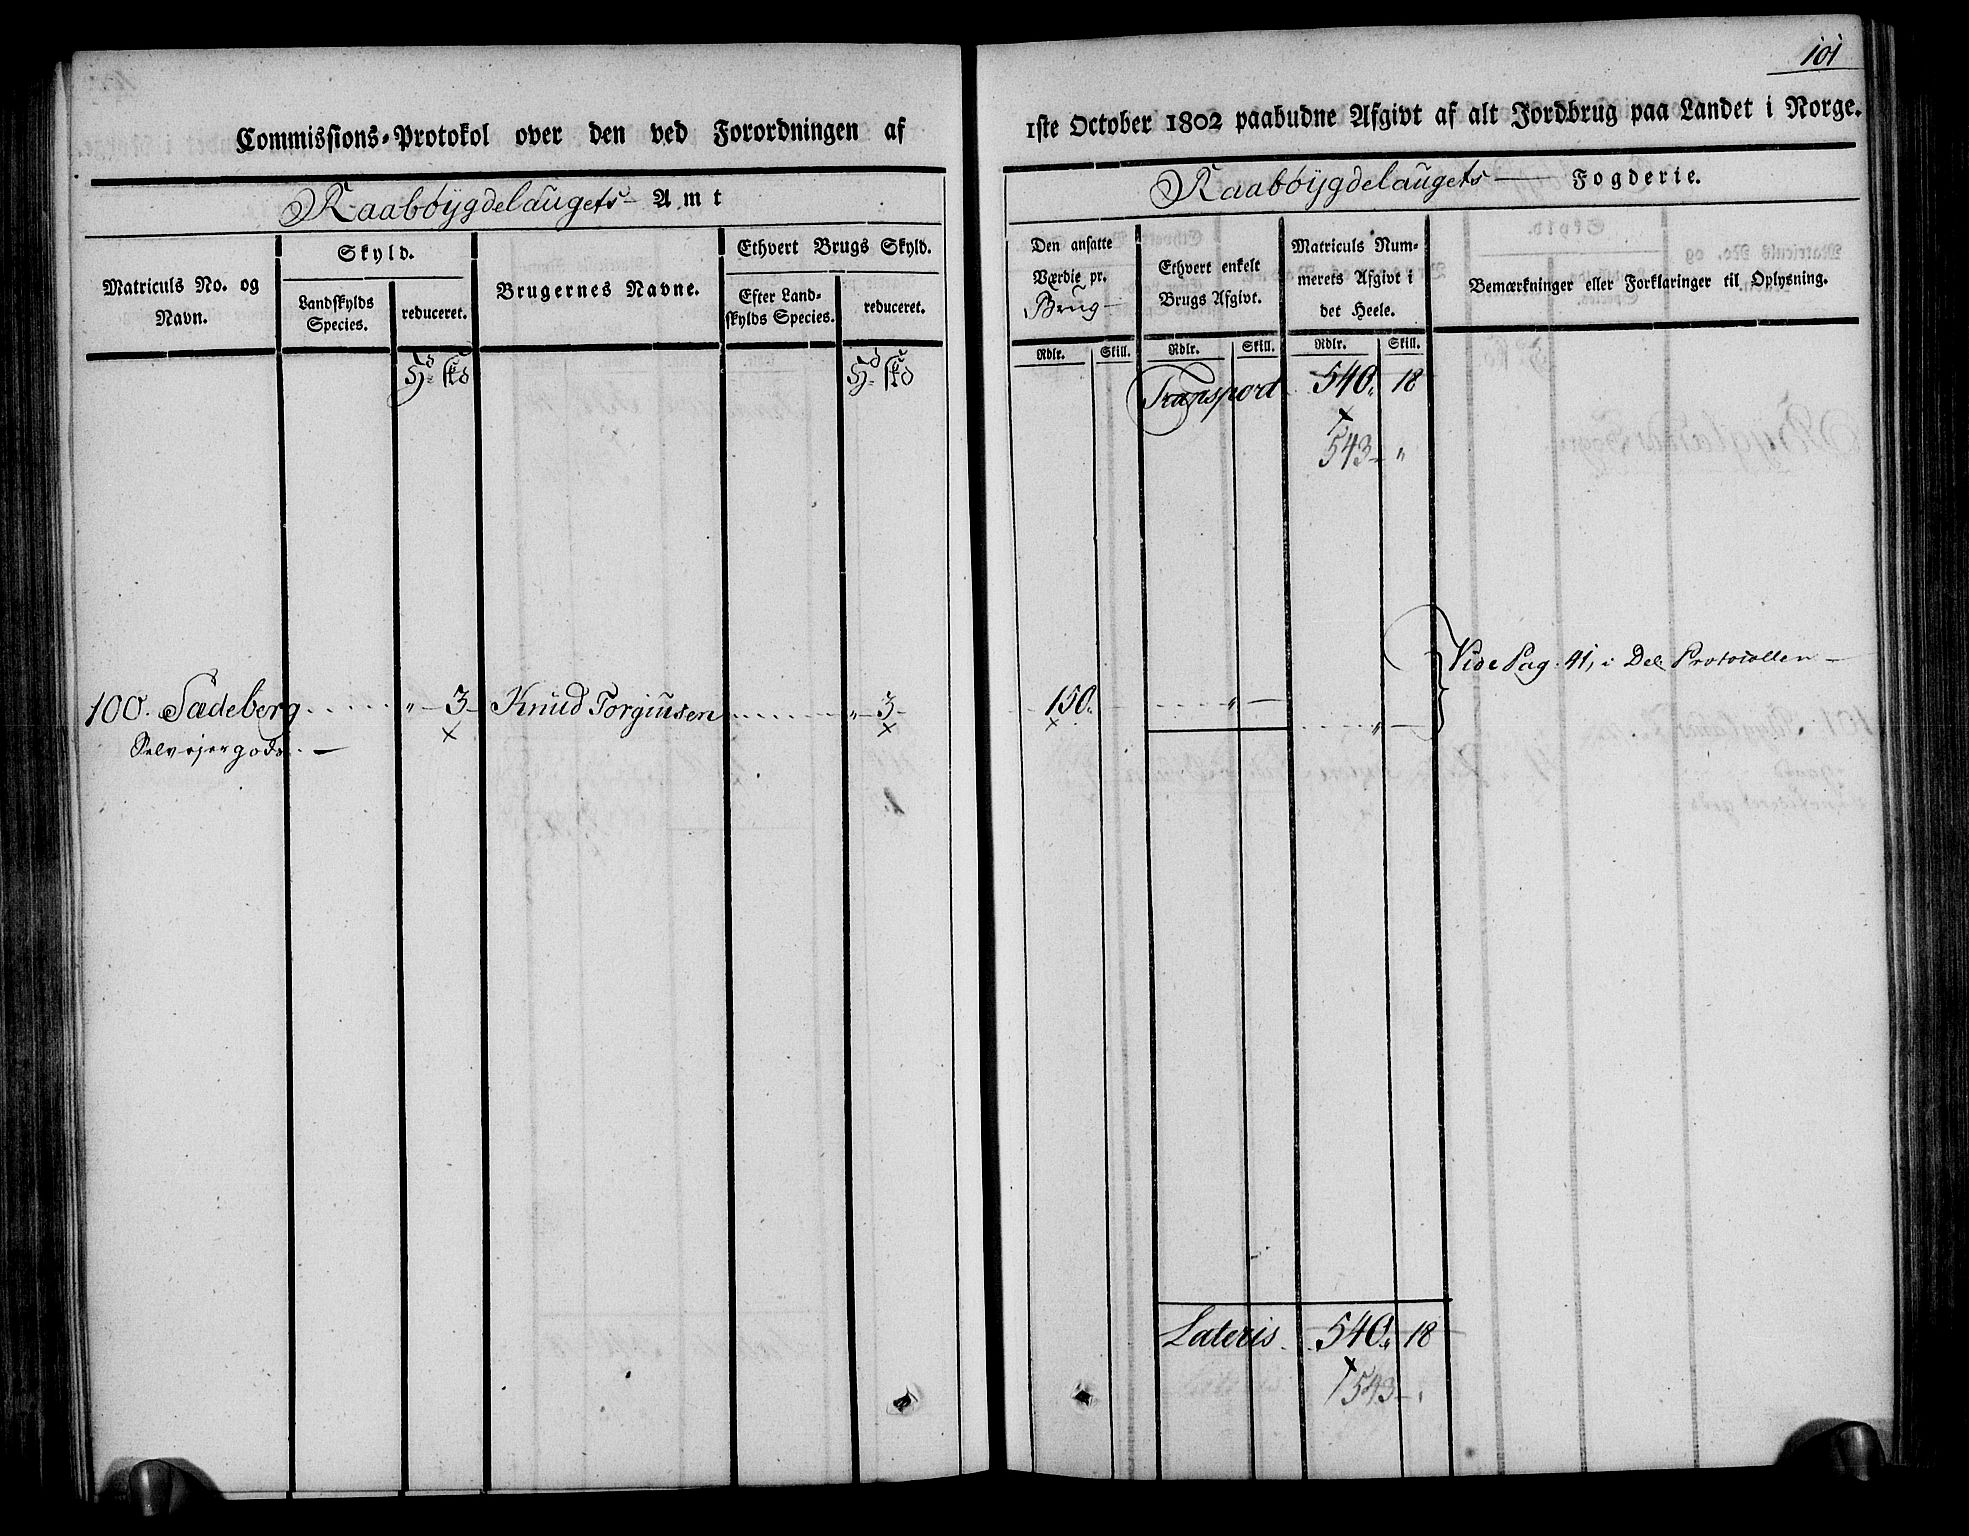 101
Commissions-Protokol over den ved Forordningen af
1ste October 1802 paabudne Afgivt af alt Jordbrug paa Landet i Norge.
Raabøygdelaugets Amt
Raabøygdelaugets Fogderie.
Matriculs No. og Navn.
Skyld.
Landskylds Species.
reduceret.
Brugernes Navne.
Ethvert Brugs Skyld.
Efter Landskylds Species.
reduceret.
Den ansatte Værdie pr. Brug
Ethvert enkelt Brugs Afgivt.
Matriculs Nummerets Afgivt i det Heele.
Bemærkninger eller Forklaringer til Oplysning.
Rdlr. Skill. Rdlr. Skill. Rdlr. Skill.
Transport 540. 18
543 - "
Vide Pag. 41, i Del. Protocollen
100. Sædeberg " 3 Knud Torgiusen " 3 150. " "
Selvejergods.
Lateris 540. 18
543